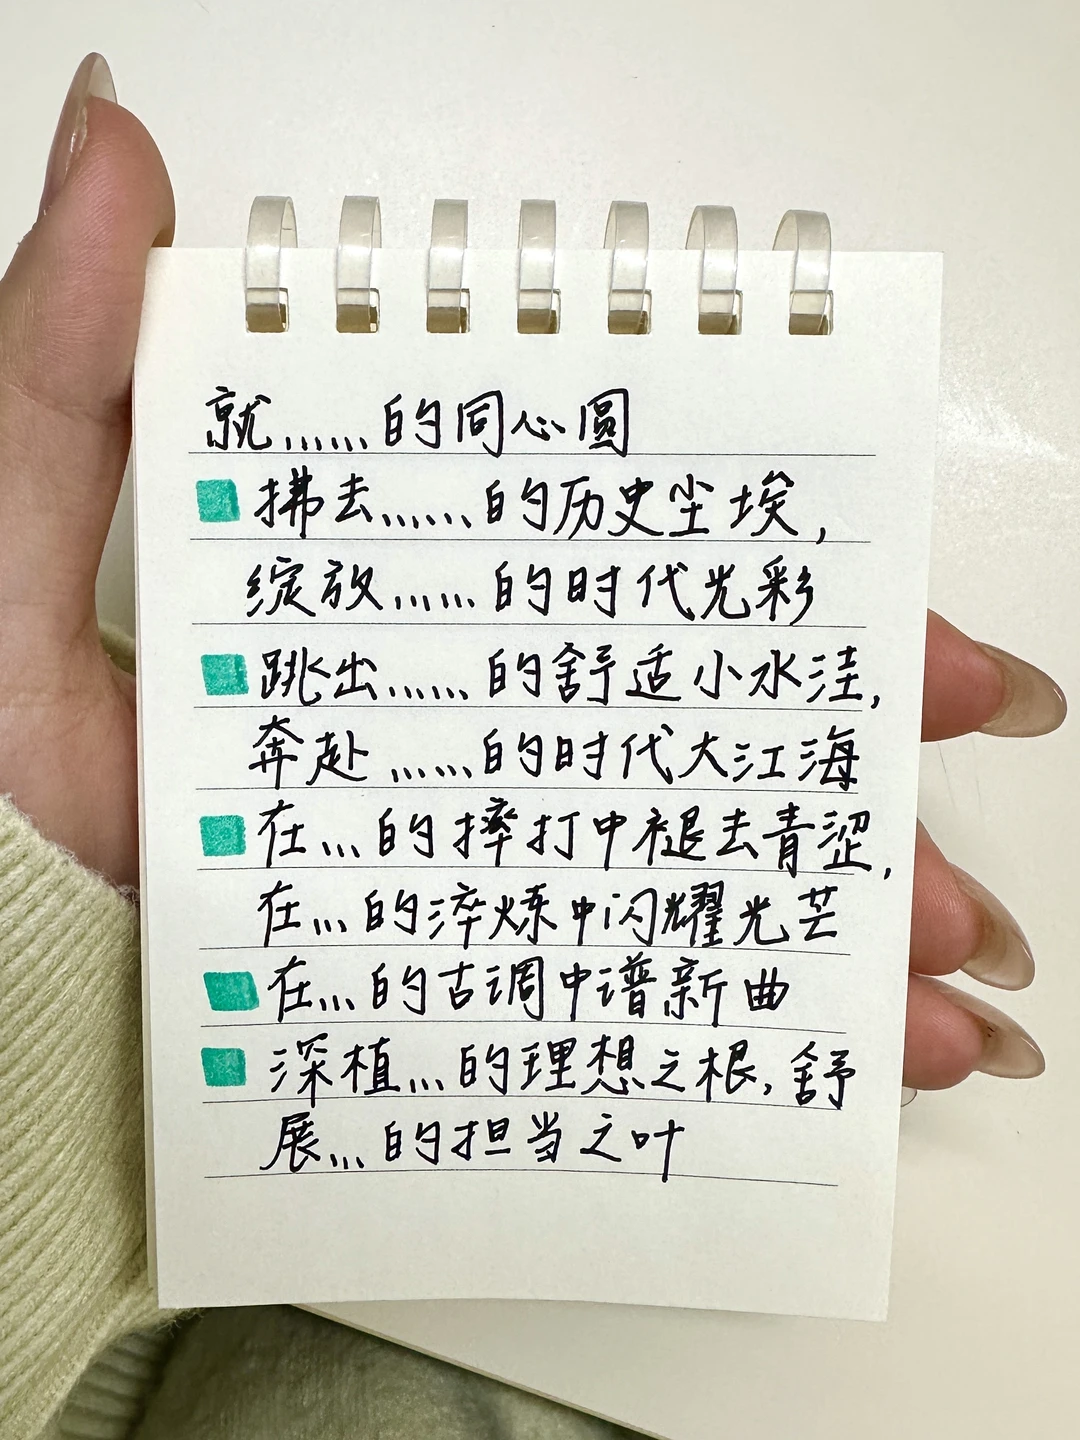 就......的同心圆
拂去......的历史尘埃,
绽放......的时代光彩
跳出......的舒适小水洼,
奔赴......的时代大江海
在...的摔打中褪去青涩,
在...的淬炼中闪耀光芒
在...的古调中谱新曲
深植...的理想之根,舒
展...的担当之叶